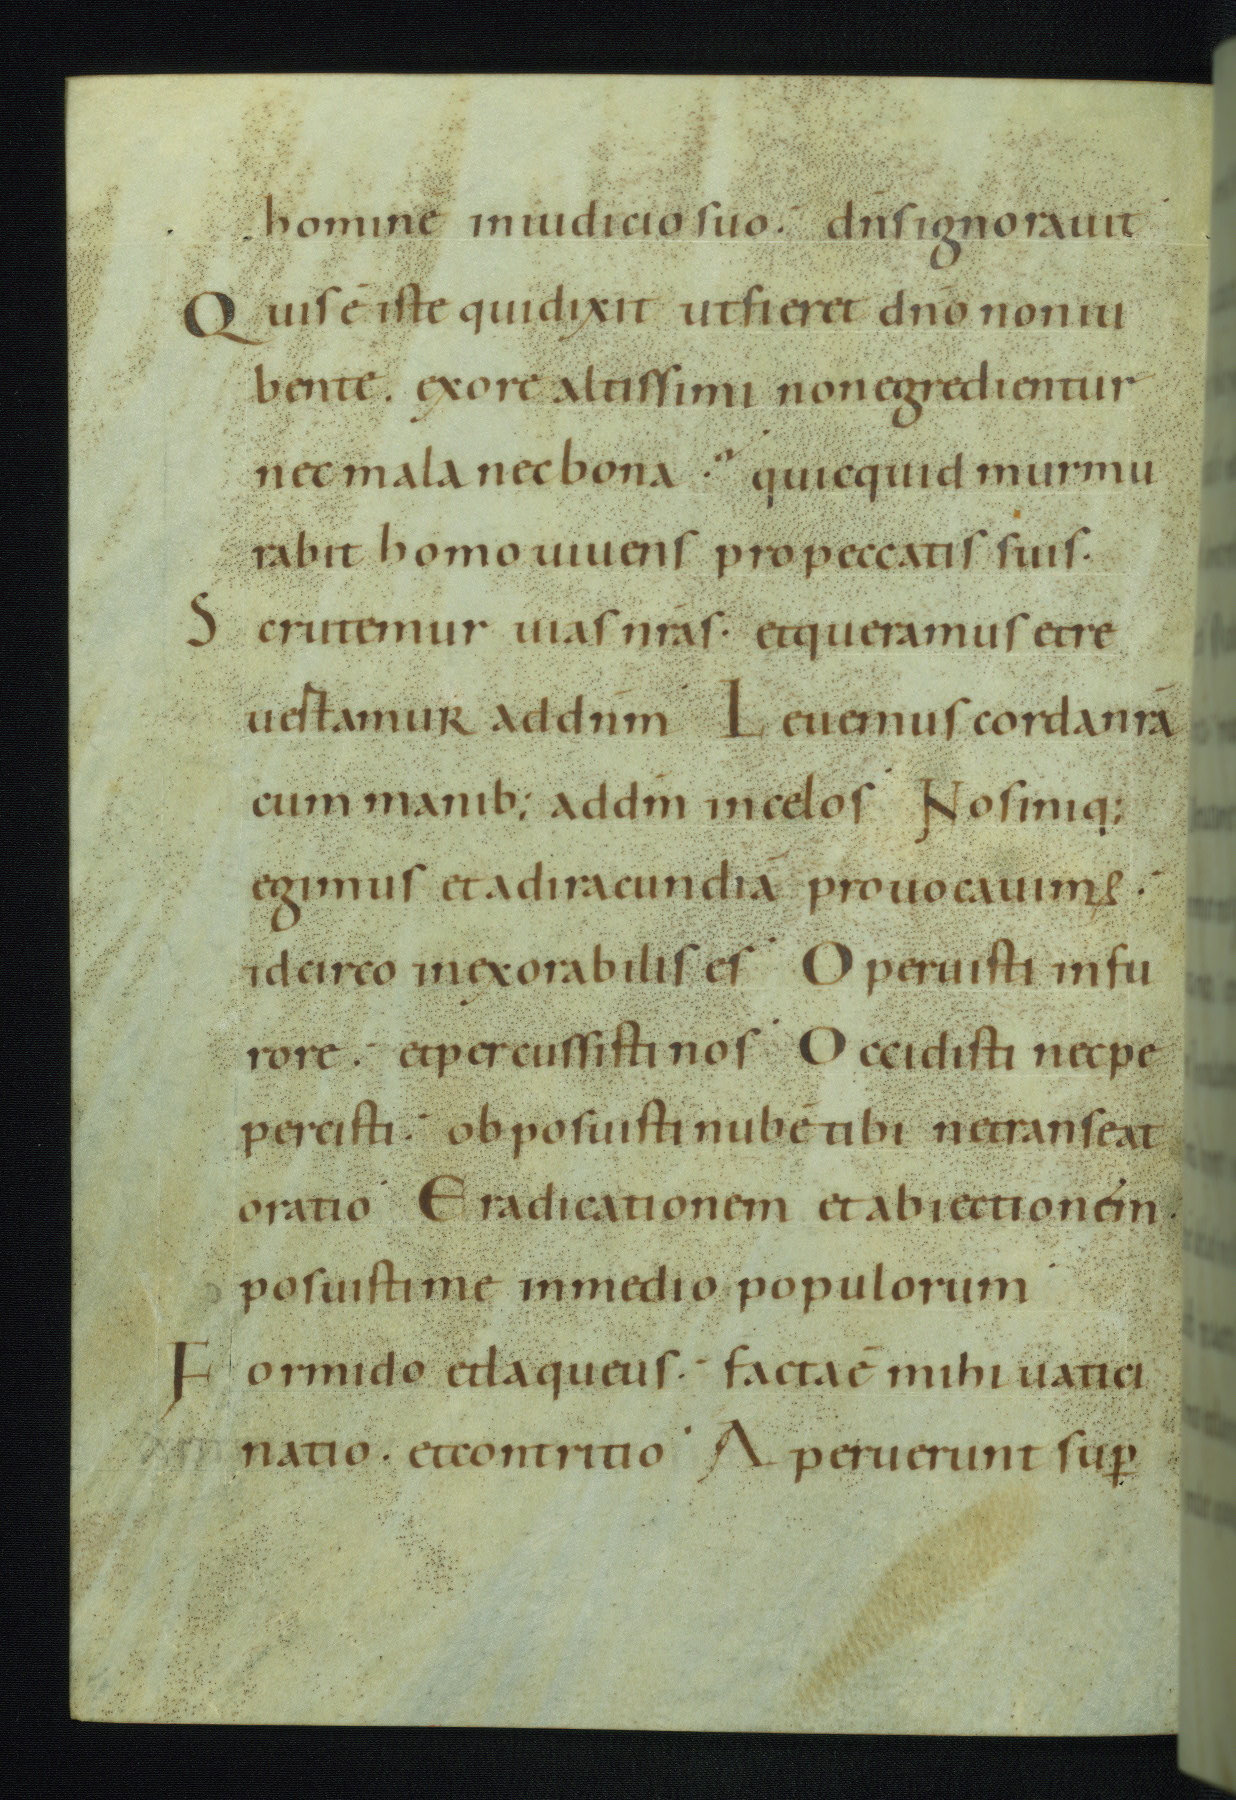 hominē in iudicio suo. dn̄s ignorauit
Quis ē iste qui dixit ut fieret dn̄o non iu
bente. ex ore altissimi non egredientur
nec mala nec bona. quicquid murmu
rabit homo uiuens pro peccatis suis.
Scrutemur uias nr̄as. et queramus et re
uertamur ad dn̄m Leuemus corda nr̄a
cum manib; ad dn̄m in celos Nos iniq;
egimus et ad iracundiā prouocauimꝰ.
idcirco inexorabilis es Operuisti in fu
rore. et percussisti nos Occidisti nec pe
percisti. obposuisti nubē tibi ne transeat
oratio Eradicationem et abiectionem.
posuisti me in medio populorum
Formido et laqueus. facta ē mihi uatici
natio. et contritio Aperuerunt suꝑ